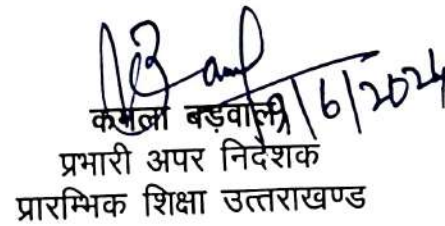 कमला बड़वाल
प्रभारी अपर निदेशक
प्रारम्भिक शिक्षा उत्तराखण्ड